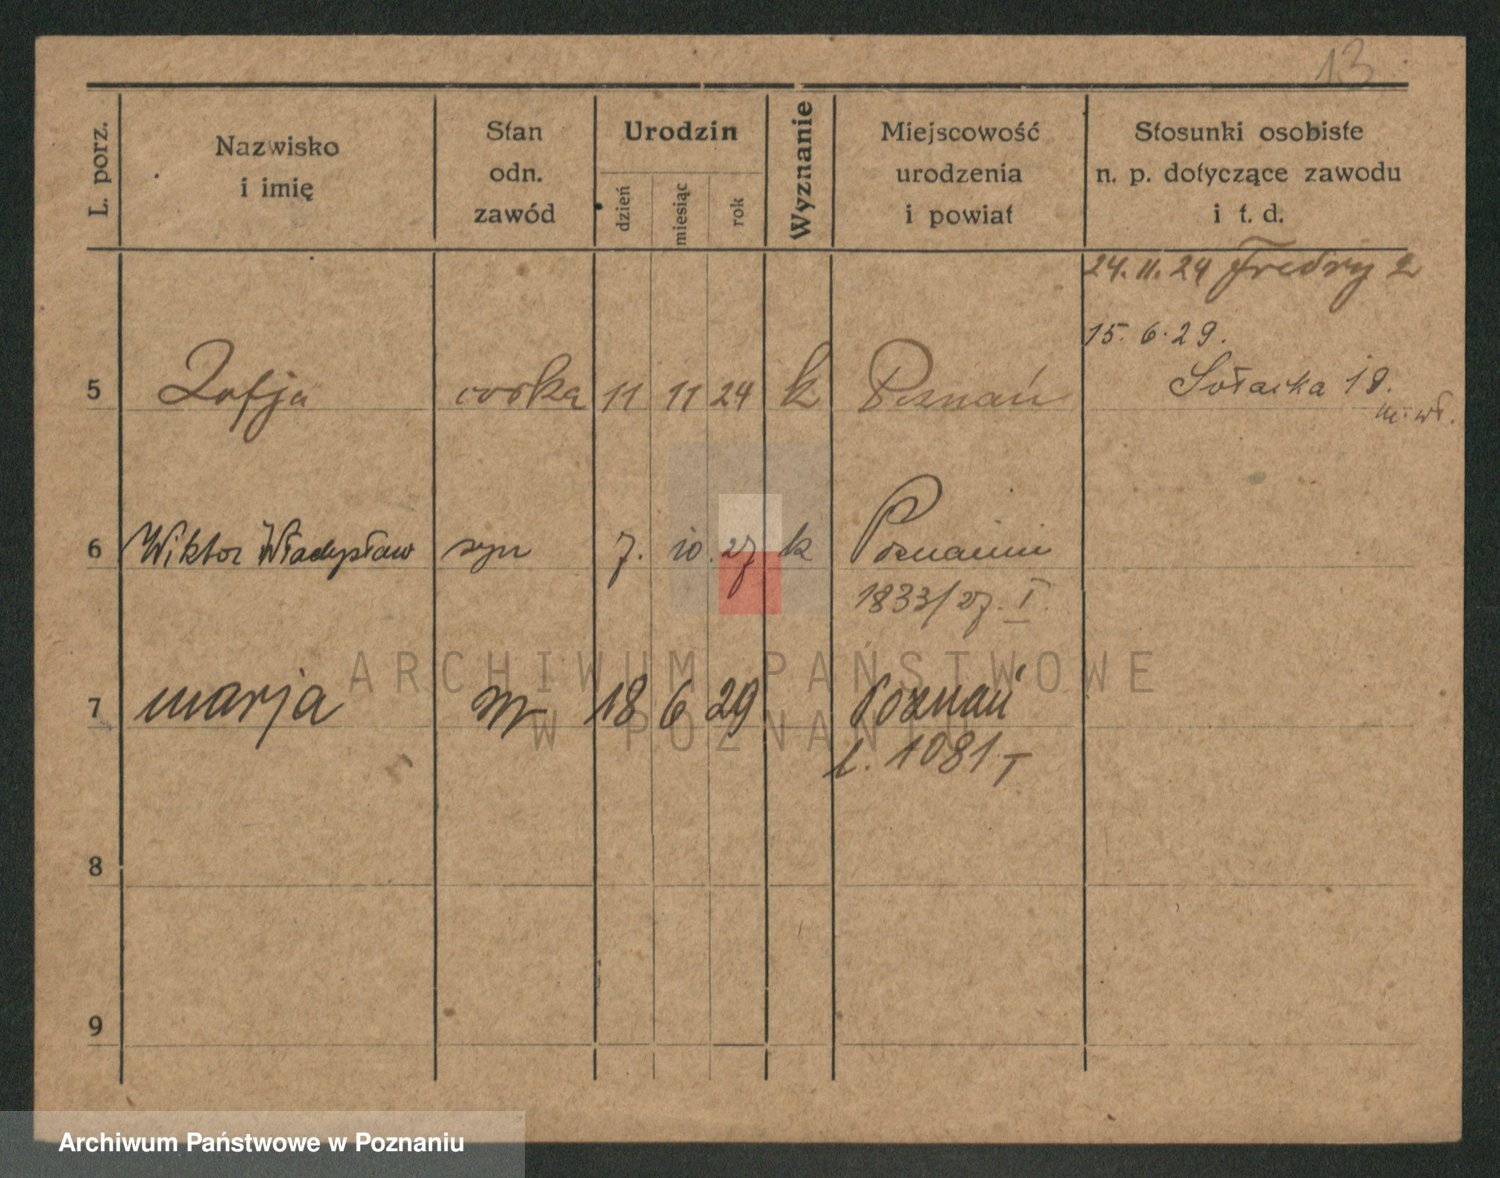 13
L. porz.
Nazwisko
i imię
Stan
odn.
zawód
Urodzin
dzień
miesiąc
rok
Wyznanie
Miejscowość
urodzenia
i powiat
Stosunki osobiste
n. p. dotyczące zawodu
i t. d.
24. 11. 24 Fredry 2
15. 6. 29.
Sołacka 18.
m. wł.
5 Zofja córka 11 11 24 k Poznań
6 Wiktor Władysław syn 7. 10. 27 k Poznaniu
1833/27. I
7 marja 18 6 29 Poznań
l. 1081 I
8
9
ARCHIWUM PAŃSTWOWE
W POZNANIU
Archiwum Państwowe w Poznaniu